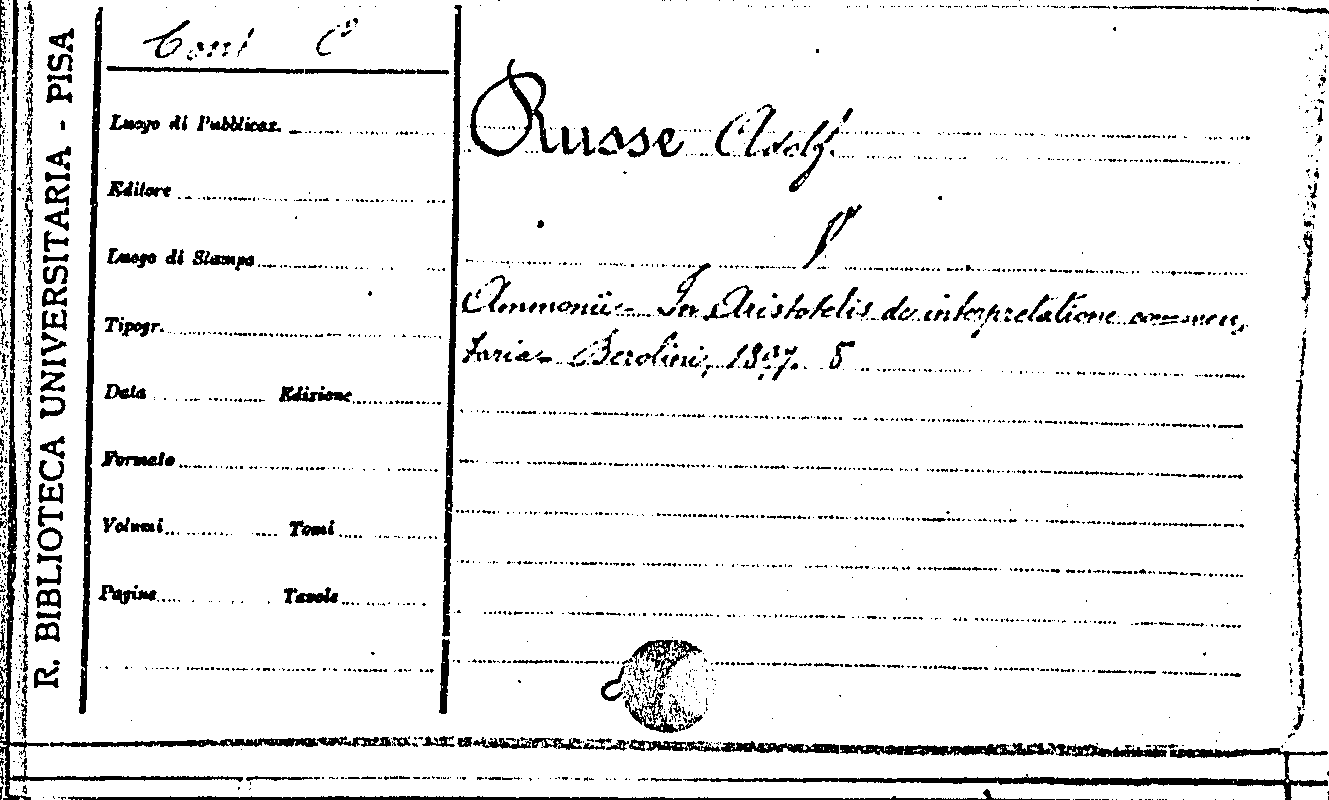 R. BIBLIOTECA UNIVERSITARIA - PISA
Coni C°
Luogo di Pubblicaz.
Editore
Luogo di Stampa
Tipogr.
Data Edizione
Formato
Volumi Tomi
Pagine Tavole
Russe Adolf.
Ammonii - In Aristotelis de interpretatione commen,
taria - Berolini, 1897. 8